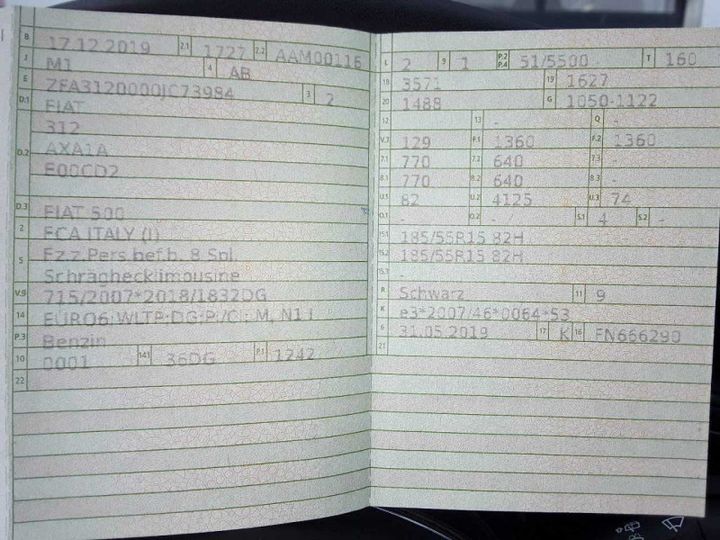 B 17.12.2019 2.1 1727 2.2 AAM00116
J M1 4 AB
E ZFA3120000JC73984 3 2
D.1 FIAT
312
D.2 AXA1A
E00CD2
D.3 FIAT 500
2 FCA ITALY (I)
5 Fz.z.Pers.bef.b. 8 Spl.
Schräghecklimousine
V.9 715/2007*2018/1832DG
14 EURO6;WLTP;DG;PI/CI; M, N1 I
P.3 Benzin
10 0001 14.1 36DG P.1 1242
22
L 2 9 1 P.2 P.4 51/5500 T 160
18 3571 19 1627
20 1488 G 1050-1122
12 - 13 - Q -
V.7 129 F.1 1360 F.2 1360
7.1 770 7.2 640 7.3 -
8.1 770 8.2 640 8.3 -
U.1 82 U.2 4125 U.3 74
O.1 - O.2 - S.1 4 S.2 -
15.1 185/55R15 82H
15.2 185/55R15 82H
15.3 -
R Schwarz 11 9
K e3*2007/46*0064*53
6 31.05.2019 17 K 16 FN666290
21